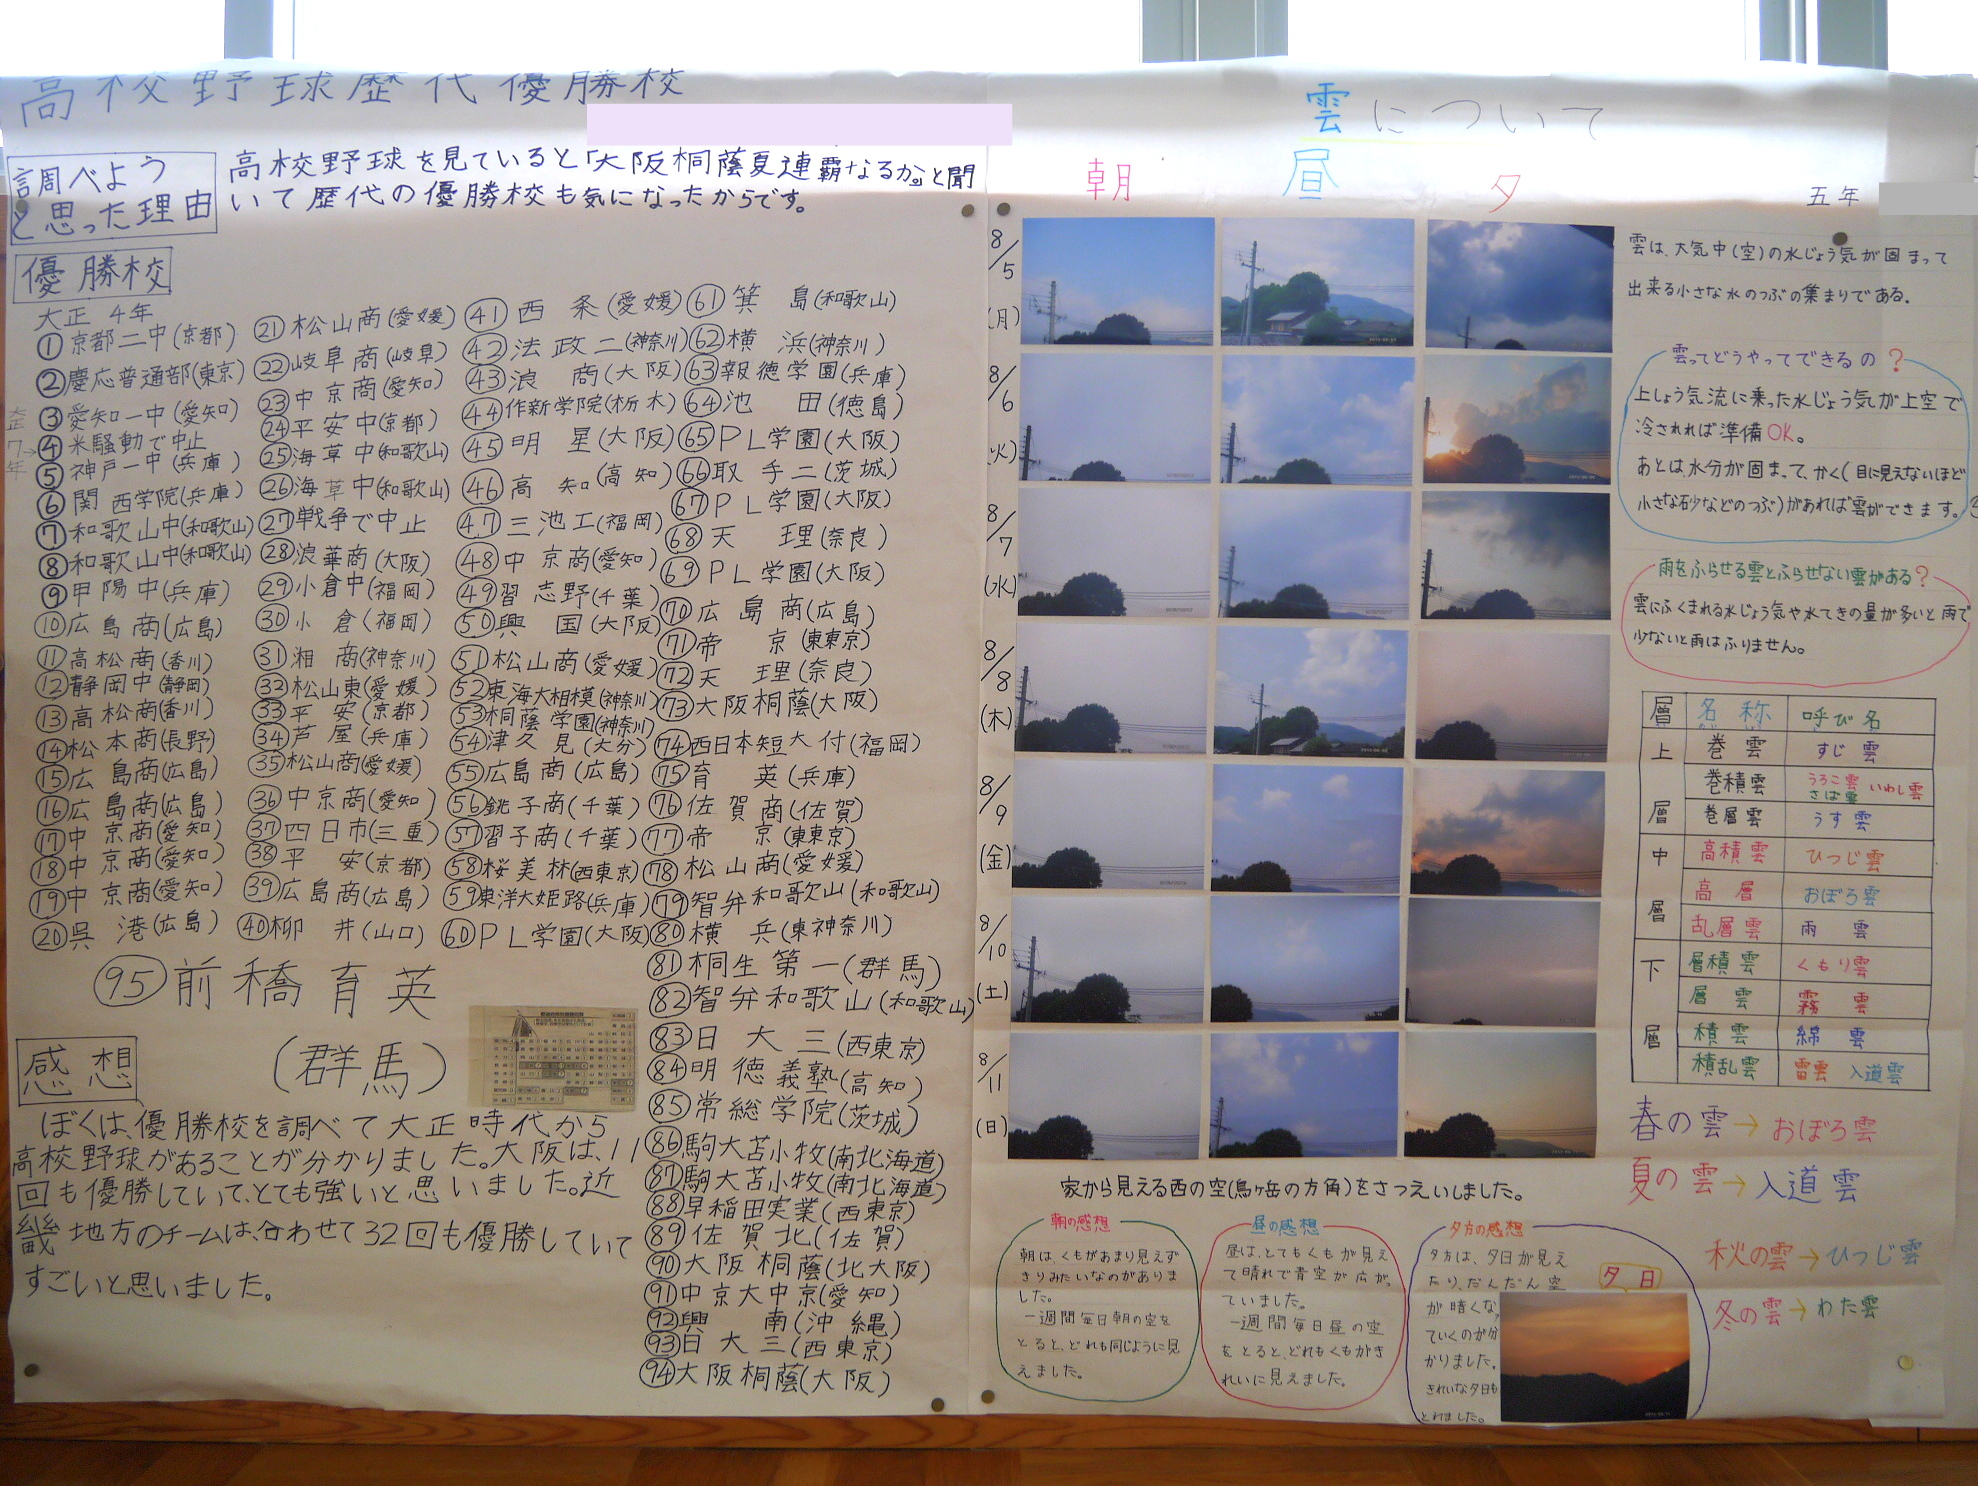 高校野球歴代優勝校
調べよう
と思った理由
高校野球を見ていると「大阪桐蔭夏連覇なるか」と聞
いて歴代の優勝校も気になったからです。
優勝校
大正 4年
①京都二中(京都)
②慶応普通部(東京)
③愛知一中(愛知)
大正7年→
④米騒動で中止
⑤神戸一中(兵庫)
⑥関西学院(兵庫)
⑦和歌山中(和歌山)
⑧和歌山中(和歌山)
⑨甲陽中(兵庫)
⑩広島商(広島)
⑪高松商(香川)
⑫静岡中(静岡)
⑬高松商(香川)
⑭松本商(長野)
⑮広島商(広島)
⑯広島商(広島)
⑰中京商(愛知)
⑱中京商(愛知)
⑲中京商(愛知)
⑳呉港(広島)
㉑松山商(愛媛)
㉒岐阜商(岐阜)
㉓中京商(愛知)
㉔平安中(京都)
㉕海草中(和歌山)
㉖海草中(和歌山)
㉗戦争で中止
㉘浪華商(大阪)
㉙小倉中(福岡)
㉚小倉(福岡)
㉛湘商(神奈川)
㉜松山東(愛媛)
㉝平安(京都)
㉞芦屋(兵庫)
㉟松山商(愛媛)
㊱中京商(愛知)
㊲四日市(三重)
㊳平安(京都)
㊴広島商(広島)
㊵柳井(山口)
㊶西条(愛媛)
㊷法政二(神奈川)
㊸浪商(大阪)
㊹作新学院(栃木)
㊺明星(大阪)
㊻高知(高知)
㊼三池工(福岡)
㊽中京商(愛知)
㊾習志野(千葉)
㊿興国(大阪)
51松山商(愛媛)
52東海大相模(神奈川)
53桐蔭学園(神奈川)
54津久見(大分)
55広島商(広島)
56銚子商(千葉)
57習子商(千葉)
58桜美林(西東京)
59東洋大姫路(兵庫)
60PL学園(大阪)
61箕島(和歌山)
62横浜(神奈川)
63報徳学園(兵庫)
64池田(徳島)
65PL学園(大阪)
66取手二(茨城)
67PL学園(大阪)
68天理(奈良)
69PL学園(大阪)
70広島商(広島)
71帝京(東東京)
72天理(奈良)
73大阪桐蔭(大阪)
74西日本短大付(福岡)
75育英(兵庫)
76佐賀商(佐賀)
77帝京(東東京)
78松山商(愛媛)
79智弁和歌山(和歌山)
80横兵(東神奈川)
81桐生第一(群馬)
82智弁和歌山(和歌山)
83日大三(西東京)
84明徳義塾(高知)
85常総学院(茨城)
86駒大苫小牧(南北海道)
87駒大苫小牧(南北海道)
88早稲田実業(西東京)
89佐賀北(佐賀)
90大阪桐蔭(北大阪)
91中京大中京(愛知)
92興南(沖縄)
93日大三(西東京)
94大阪桐蔭(大阪)
95前橋育英
(群馬)
感想
ぼくは、優勝校を調べて大正時代から
高校野球があることが分かりました。大阪は、11
回も優勝していて、とても強いと思いました。近
畿地方のチームは、合わせて32回も優勝していて
すごいと思いました。
雲について
五年
朝 昼 夕
8/5
(月)
8/6
(火)
8/7
(水)
8/8
(木)
8/9
(金)
8/10
(土)
8/11
(日)
家から見える西の空(烏ヶ岳の方角)をさつえいしました。
朝の感想
朝は、くもがあまり見えず
きりみたいなのがありま
した。
一週間毎日朝の空を
とると、どれも同じように見
えました。
昼の感想
昼は、とてもくもが見え
て晴れで青空が広がっ
ていました。
一週間毎日昼の空
をとると、どれもくもがき
れいに見えました。
夕方の感想
夕方は、夕日が見え
たり、だんだん空
が暗くなっ
ていくのが分
かりました。
きれいな夕日も
とれました。
夕日
雲は、大気中(空)の水じょう気が固まって
出来る小さな水のつぶの集まりである。
雲ってどうやってできるの?
上しょう気流に乗った水じょう気が上空で
冷されれば準備OK。
あとは、水分が固まって、かく(目に見えないほど
小さな砂などのつぶ)があれば雲ができます。
雨をふらせる雲とふらせない雲がある?
雲にふくまれる水じょう気や水てきの量が多いと雨で
少ないと雨はふりません。
層 名称 呼び名
上層 巻雲 すじ雲
巻積雲 うろこ雲 さば雲 いわし雲
巻層雲 うす雲
中層 高積雲 ひつじ雲
高層 おぼろ雲
乱層雲 雨雲
下層 層積雲 くもり雲
層雲 霧雲
積雲 綿雲
積乱雲 雷雲 入道雲
春の雲→おぼろ雲
夏の雲→入道雲
秋の雲→ひつじ雲
冬の雲→わた雲